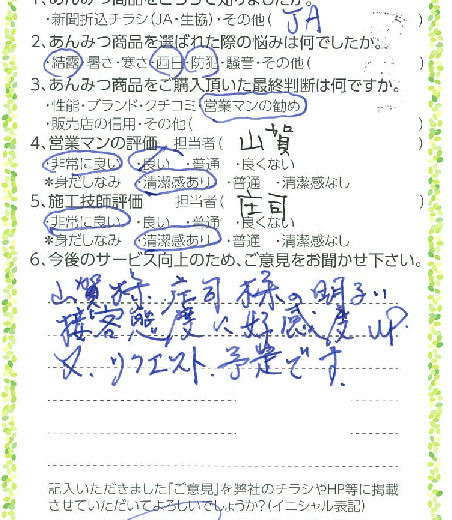 1、あんみつ商品をどちらで知りましたか。
・新聞折込チラシ(JA・生協)・その他( JA )
2、あんみつ商品を選ばれた際の悩みは何でしたか。
・結露・暑さ・寒さ・西日・防犯・騒音・その他( )
3、あんみつ商品をご購入頂いた最終判断は何ですか。
・性能・ブランド・クチコミ・営業マンの勧め
・販売店の信用・その他( )
4、営業マンの評価 担当者( 山賀 )
・非常に良い ・良い ・普通 ・良くない
*身だしなみ ・清潔感あり ・普通 ・清潔感なし
5、施工技師評価 担当者( 庄司 )
・非常に良い ・良い ・普通 ・良くない
*身だしなみ ・清潔感あり ・普通 ・清潔感なし
6、今後のサービス向上のため、ご意見をお聞かせ下さい。
山賀様 庄司様の明るい
接客態度に好感度UP.
又、リクエスト予定です.
記入いただきました「ご意見」を弊社のチラシやHP等に掲載
させていただいてよろしいでしょうか?(イニシャル表記)